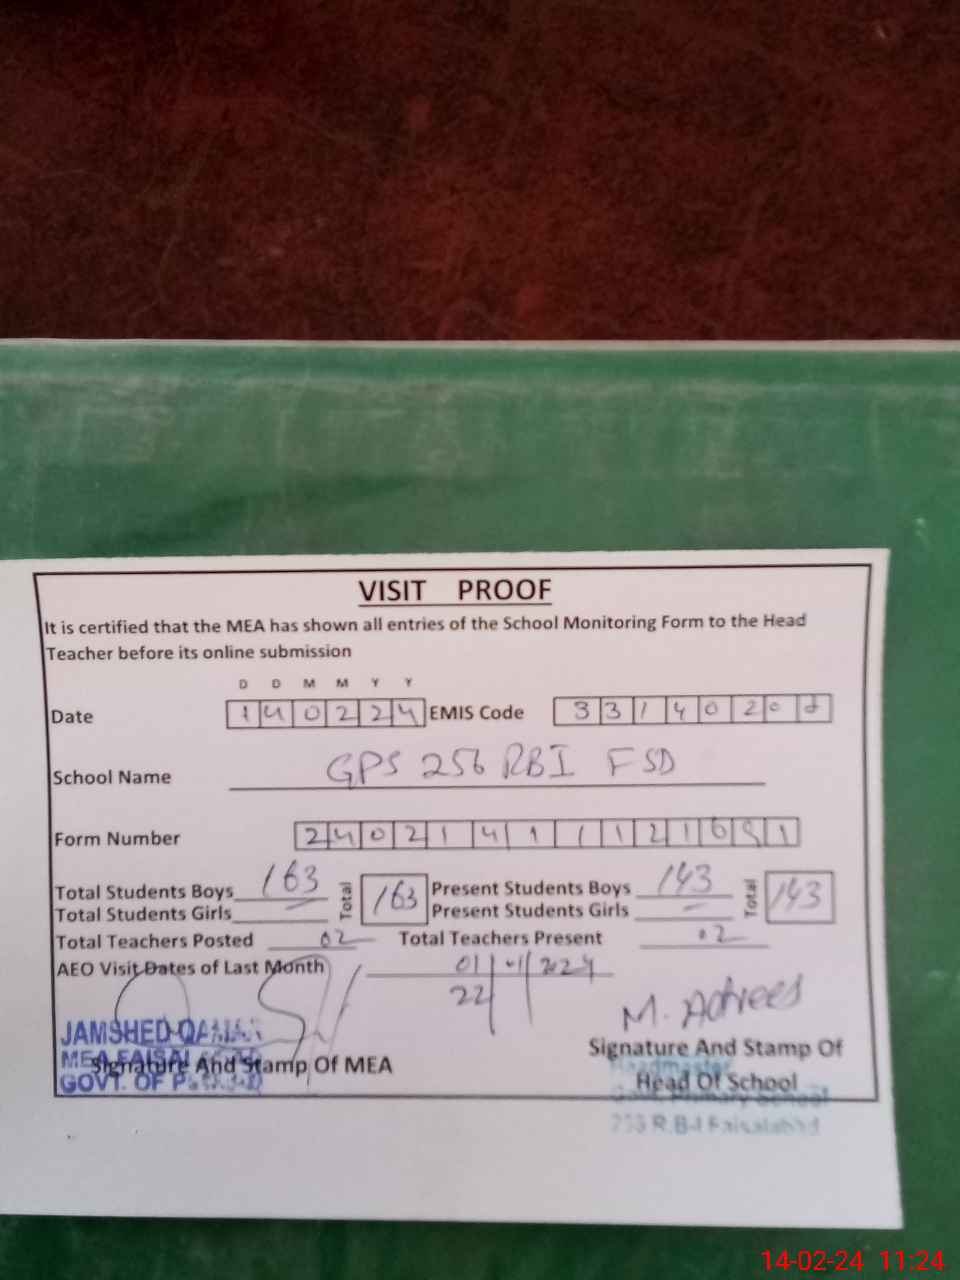 VISIT PROOF
It is certified that the MEA has shown all entries of the School Monitoring Form to the Head
Teacher before its online submission
D D M M Y Y
Date 140224 EMIS Code 3314020
School Name GPS 256 RBI FSD
Form Number 24021411121
Total Students Boys 163 Total 163 Present Students Boys 143 Total 143
Total Students Girls — Present Students Girls —
Total Teachers Posted 02 Total Teachers Present 02
AEO Visit Dates of Last Month 01/01/2024
22
M. Adrees
JAMSHED QAMAR
MEA FAISALABAD
GOVT. OF PUNJAB
Signature And Stamp Of MEA
Signature And Stamp Of
Head Of School
Headmaster
Govt. Primary School
256 R.B-I Faisalabad
14-02-24 11:24